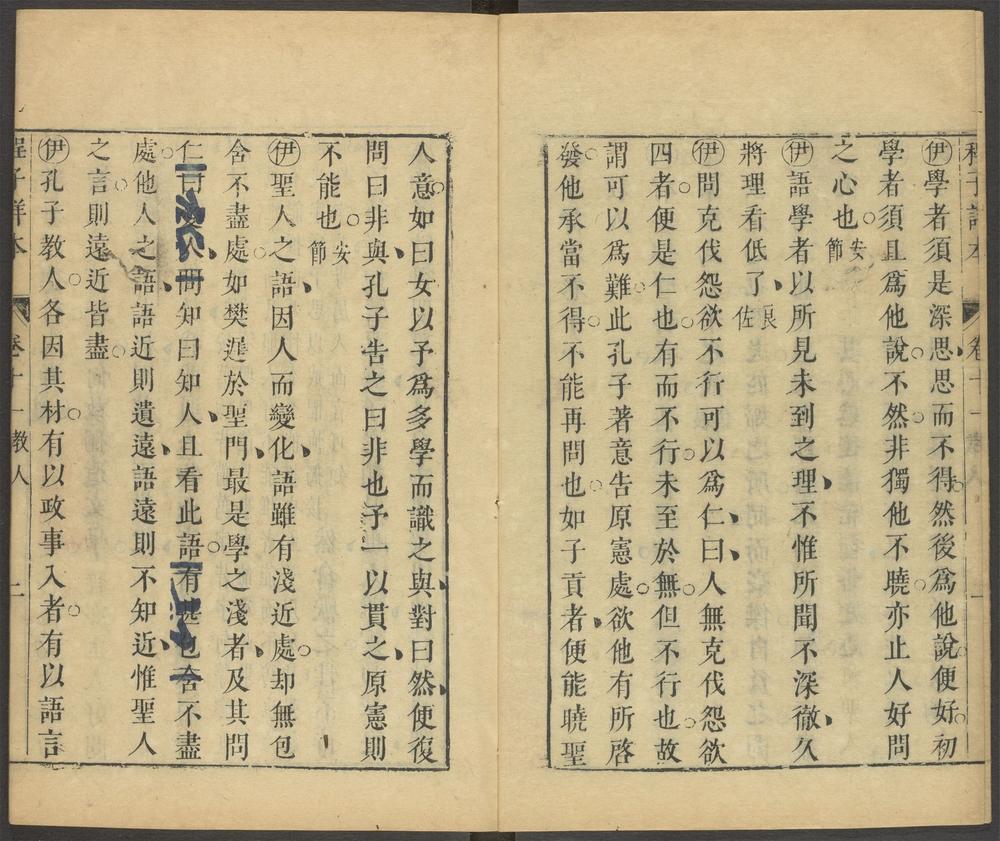 程子詳本 卷十一 教人 一
伊學者須是深思思而不得然後爲他說便好初
學者須且爲他說不然非獨他不曉亦止人好問
之心也 安節
伊語學者以所見未到之理不惟所聞不深徹久
將理看低了 良佐
伊問克伐怨欲不行可以爲仁曰人無克伐怨欲
四者便是仁也有而不行未至於無但不行也故
謂可以爲難此孔子著意告原憲處欲他有所啓
發他承當不得不能再問也如子貢者便能曉聖
人意如曰女以予爲多學而識之與對曰然便復
問曰非與孔子告之曰非也予一以貫之原憲則
不能也 安節
伊聖人之語因人而變化語雖有淺近處却無包
含不盡處如樊遲於聖門最是學之淺者及其問
仁曰人問知曰知人且看此語有也含不盡
處他人之語語近則遺遠語遠則不知近惟聖人
之言則遠近皆盡
伊孔子教人各因其材有以政事入者有以語言
程子詳本 卷十一 教人 二